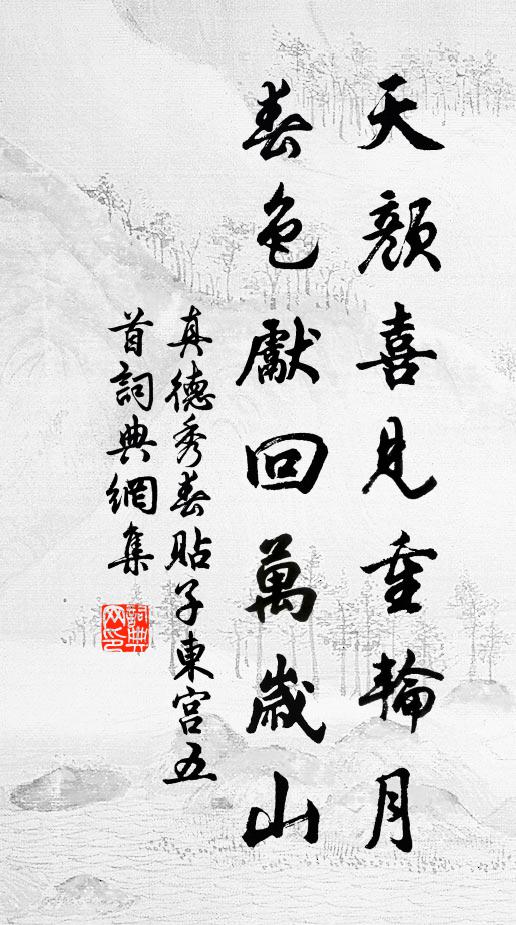 天顏喜見重輪月
春色獻回萬歲山
真德秀春貼子東宮五
首詞典網集
詞典网印